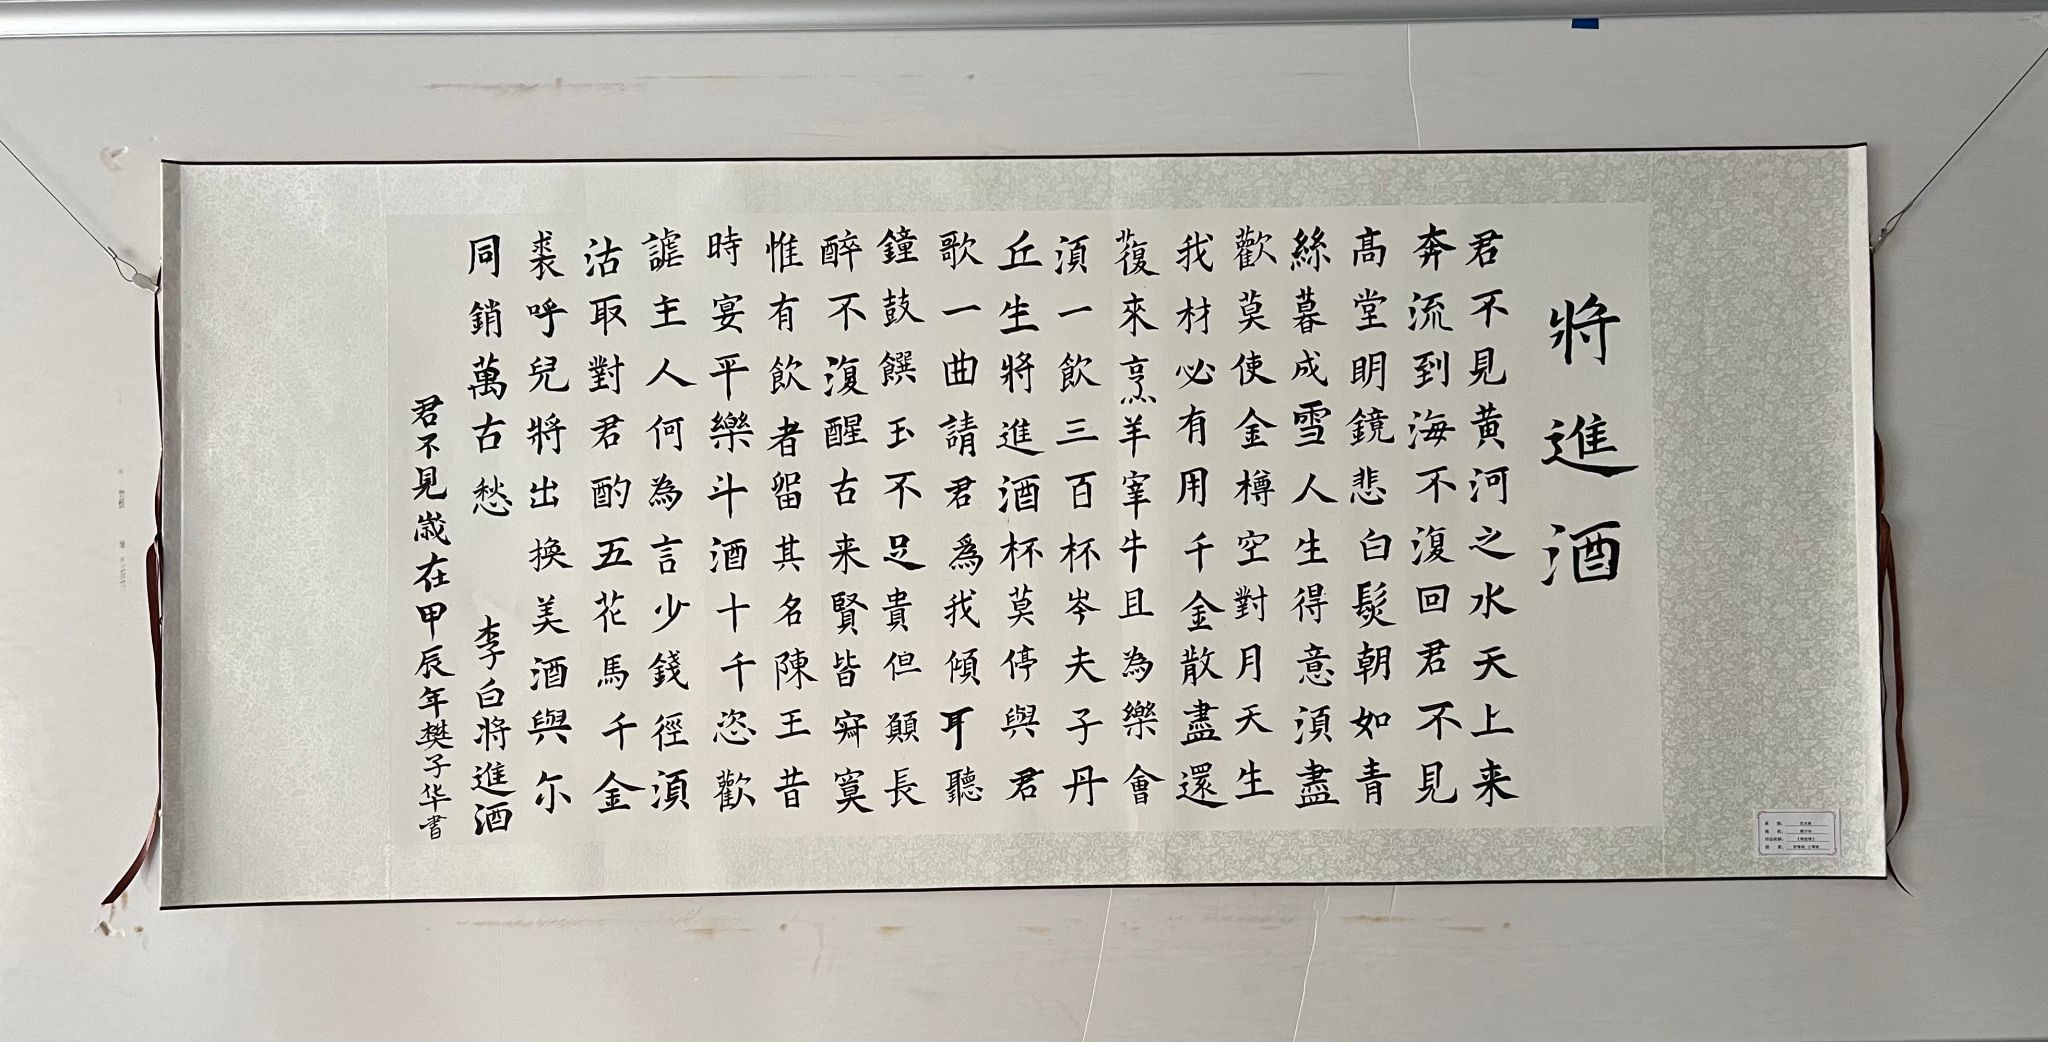 將進酒
君不見黃河之水天上来
奔流到海不復回君不見
高堂明鏡悲白髮朝如青
絲暮成雪人生得意須盡
歡莫使金樽空對月天生
我材必有用千金散盡還
復來烹羊宰牛且為樂會
須一飲三百杯岑夫子丹
丘生將進酒杯莫停與君
歌一曲請君爲我傾耳聽
鐘鼓饌玉不足貴但願長
醉不復醒古来賢皆寂寞
惟有飲者留其名陳王昔
時宴平樂斗酒十千恣歡
謔主人何為言少錢徑須
沽取對君酌五花馬千金
裘呼兒將出換美酒與尔
同銷萬古愁 李白將進酒
君不見歲在甲辰年樊子华書